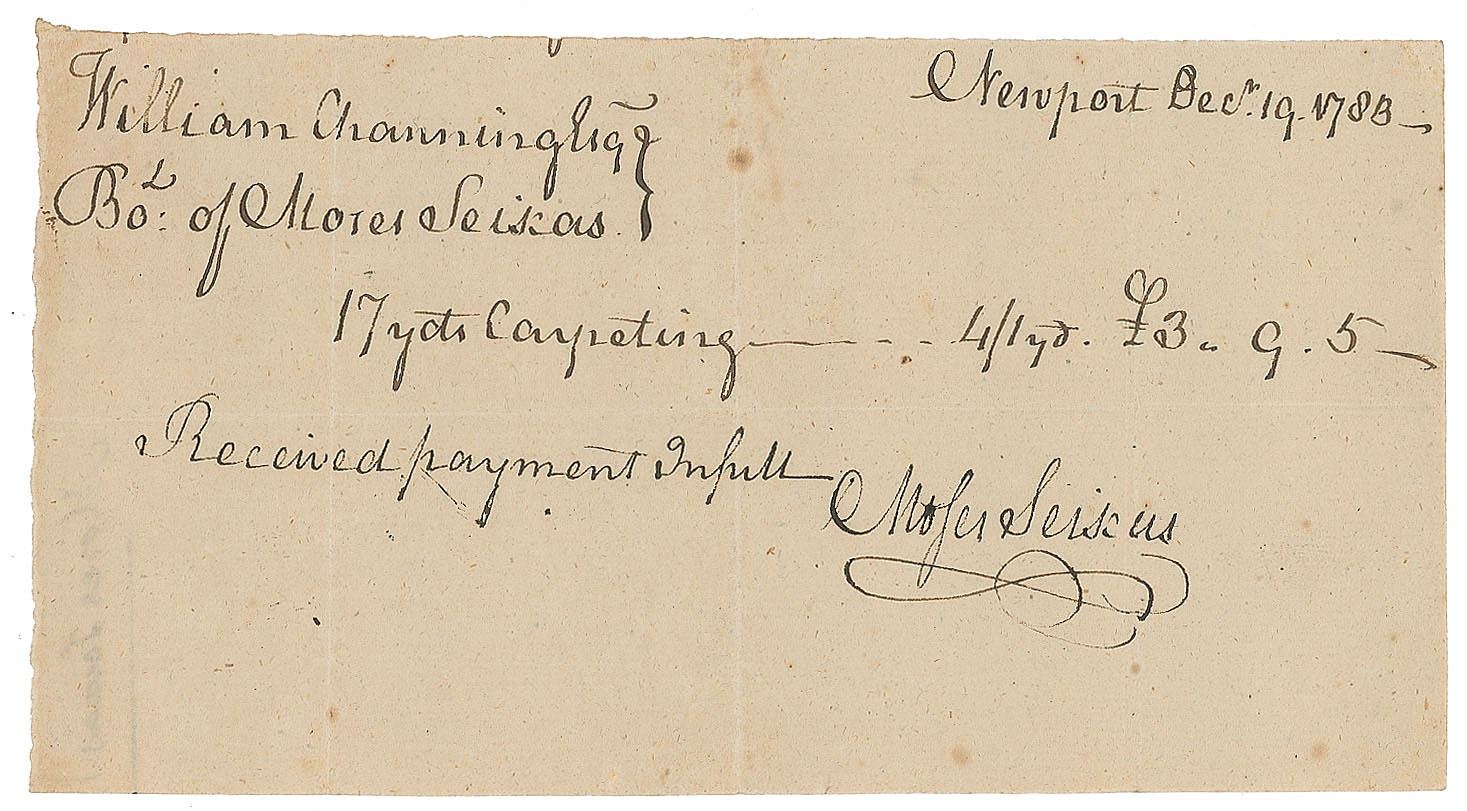 Newport Decr. 19. 1783
William Channing Esqr
Bot. of Moses Seixas
17 yds Carpeting 4/1 yd. £3 " 9 . 5
Received payment Infull
Moses Seixas